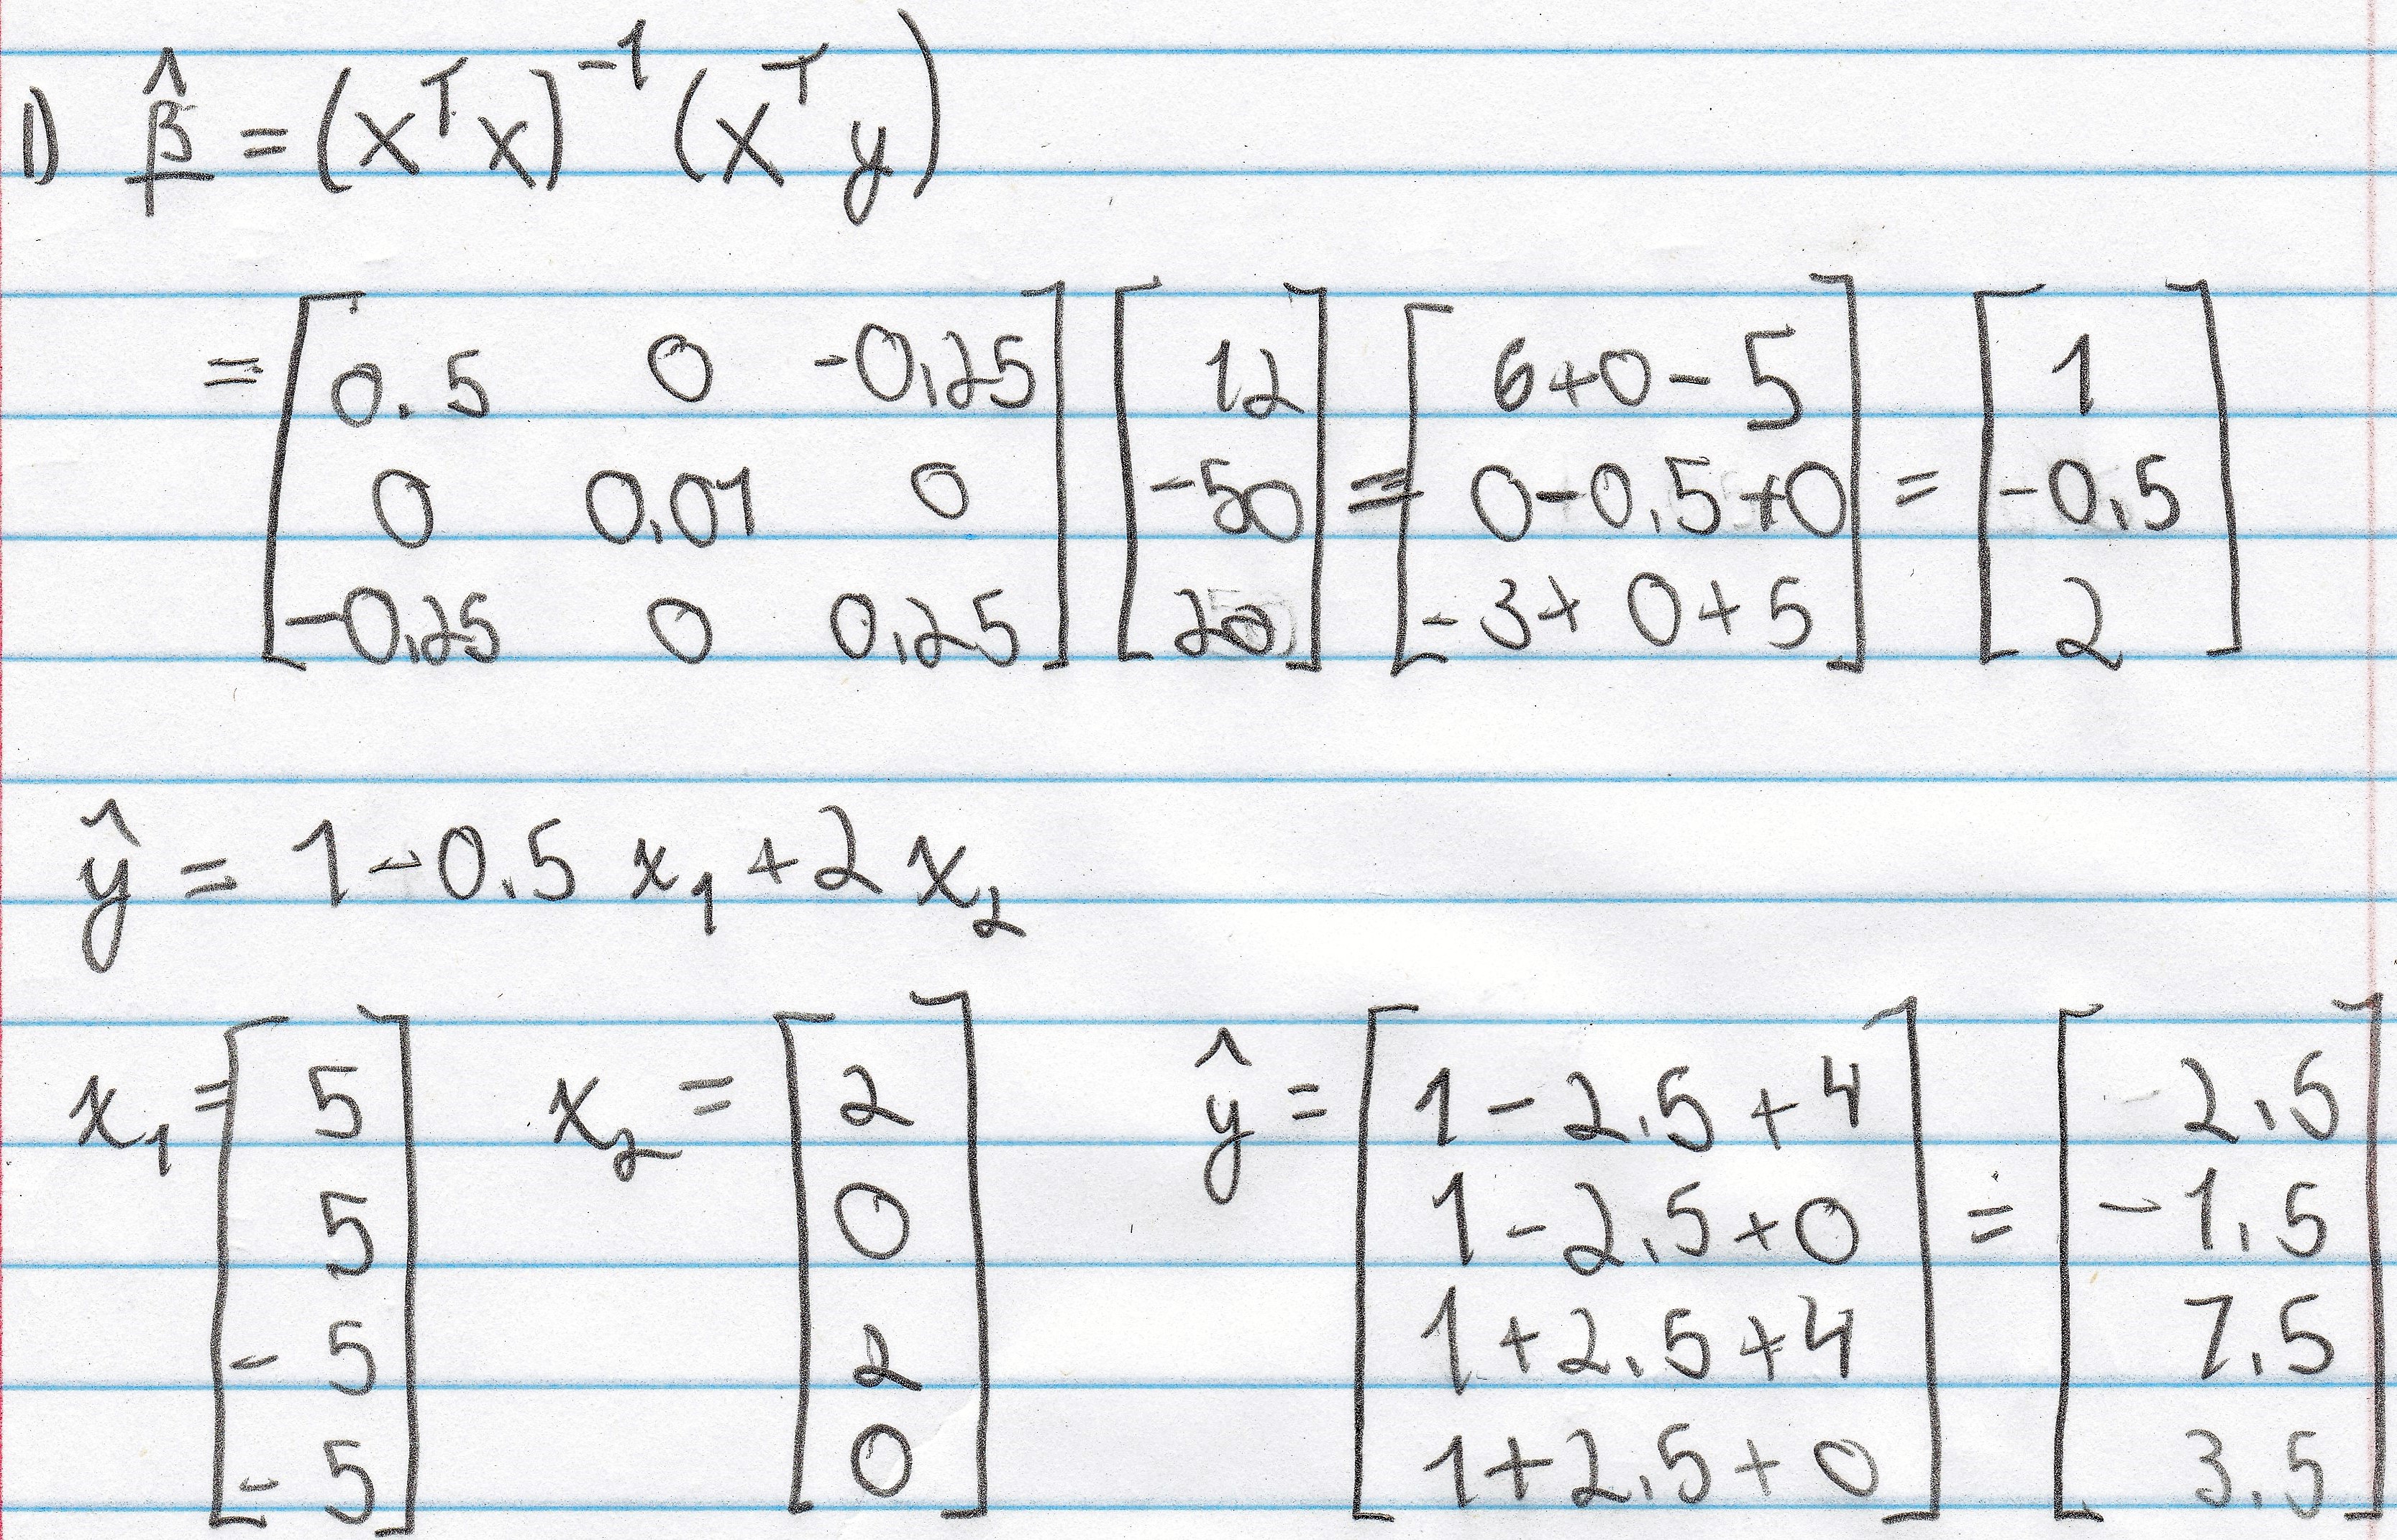 1) β̂ = (xᵀx)⁻¹ (xᵀy)
= [0.5 0 -0.25; 0 0.01 0; -0.25 0 0.25] [12; -50; 20] = [6+0-5; 0-0.5+0; -3+0+5] = [1; -0.5; 2]
ŷ = 1-0.5 x₁ +2 x₂
x₁ = [5; 5; -5; -5] x₂ = [2; 0; 2; 0] ŷ = [1-2.5+4; 1-2.5+0; 1+2.5+4; 1+2.5+0] = [2.5; -1.5; 7.5; 3.5]